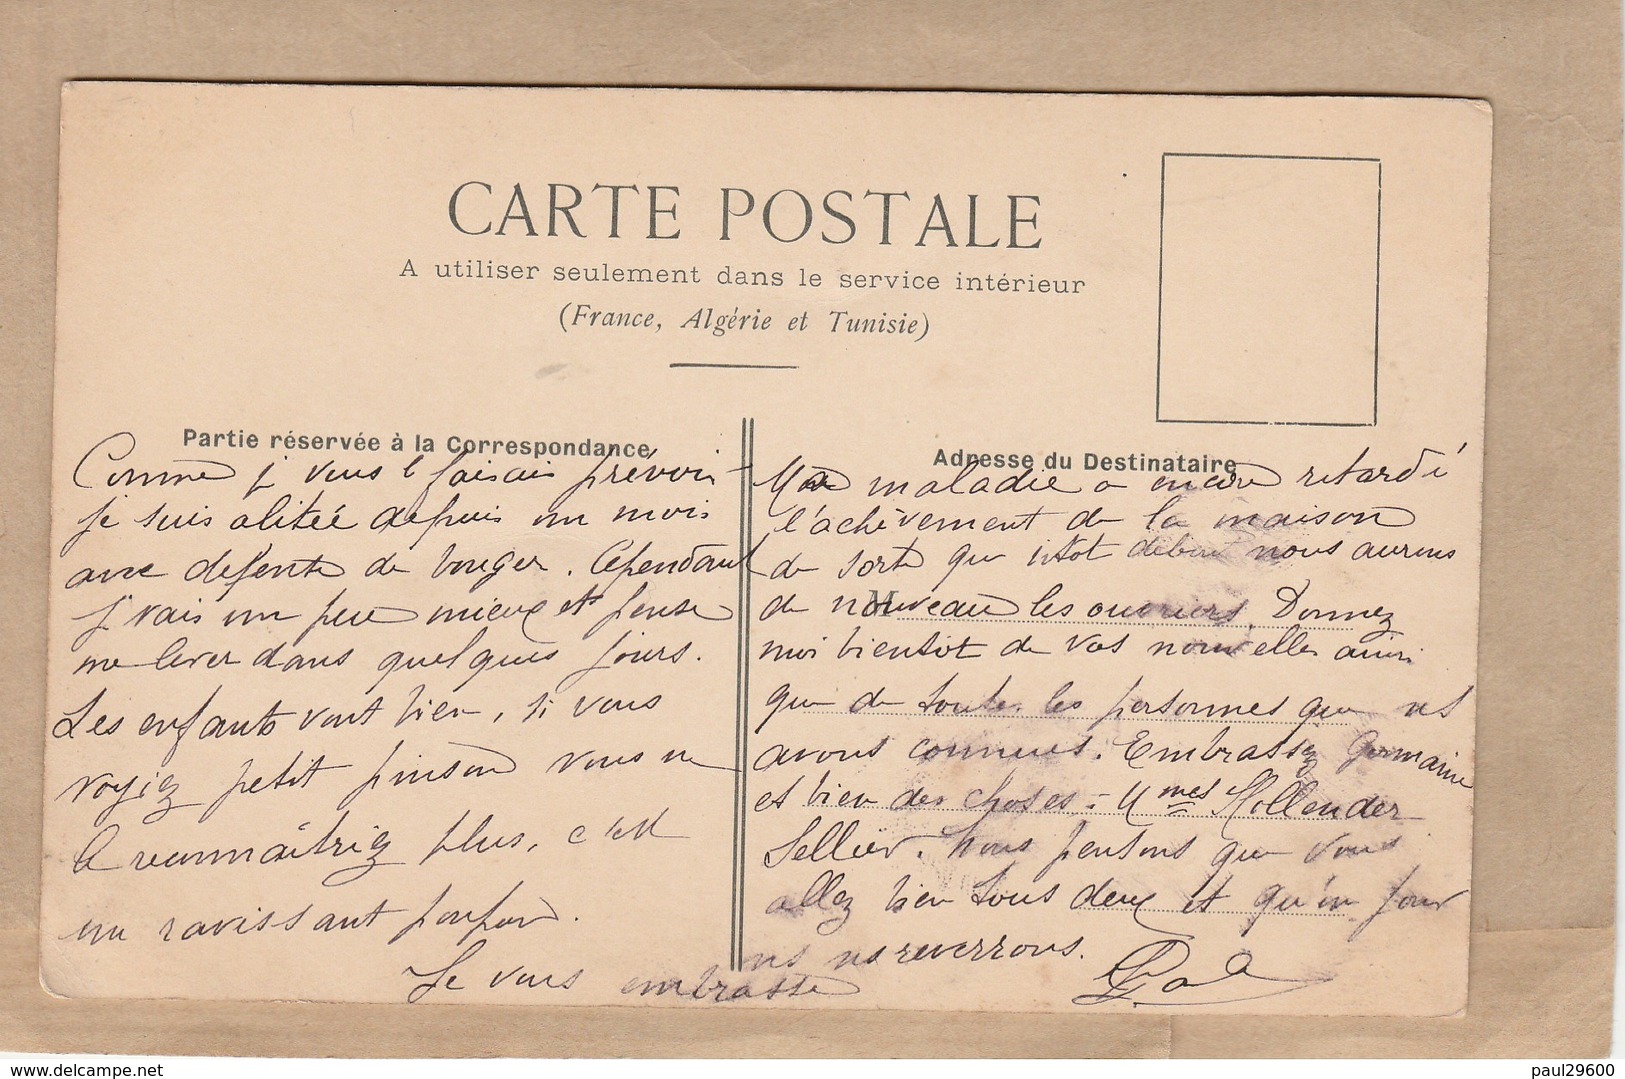 CARTE POSTALE
A utiliser seulement dans le service intérieur
(France, Algérie et Tunisie)
Partie réservée à la Correspondance
Comme je vous le faisais prévoir
je suis alitée depuis un mois
avec défense de bouger. Cependant
je vais un peu mieux et pense
me lever dans quelques jours.
Les enfants vont bien, si vous
voyiez petit pinson vous ne
le reconnaîtriez plus, c'est
un ravissant poupon.
Je vous embrasse
Adresse du Destinataire
M
Ma maladie a encore retardé
l'achèvement de la maison
de sorte que sitôt debout nous aurons
de nouveau les ouvriers. Donnez
moi bientôt de vos nouvelles ainsi
que de toutes les personnes que ns
avons connues. Embrassez Germaine
et bien des choses à Mmes Hollender
Sellier. Nous pensons que vous
allez bien tous deux et qu'un jour
ns ns reverrons.
delcampe.net
paul29600